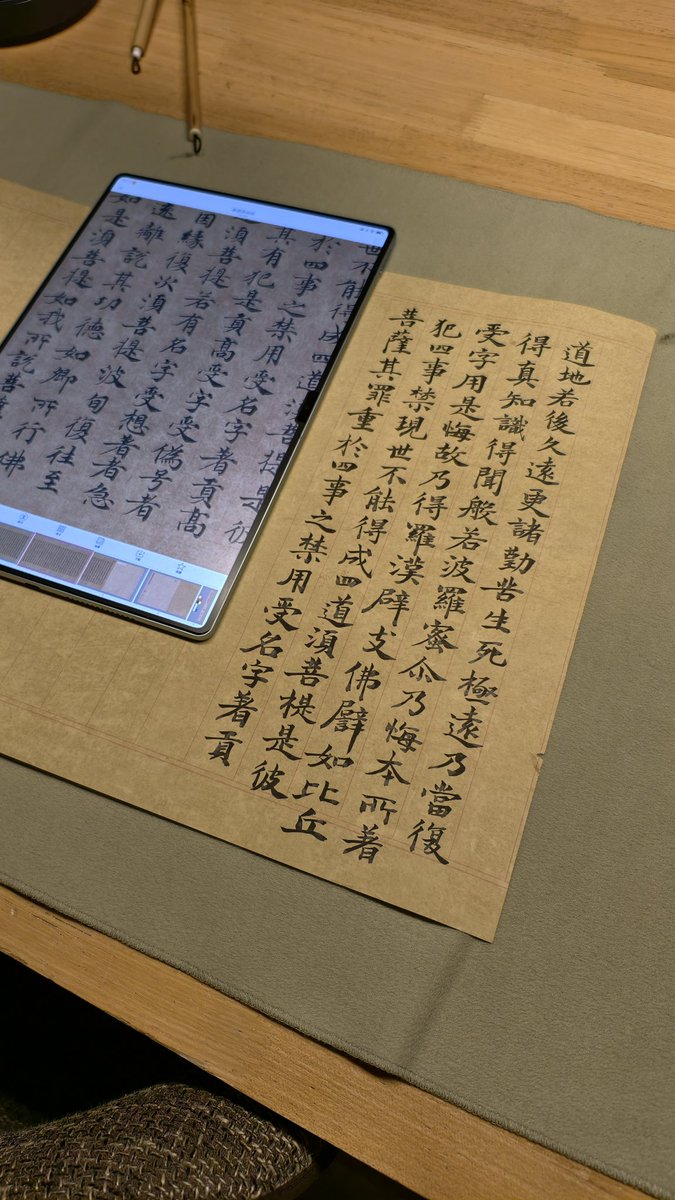 道地若後久遠更諸勤苦生死極遠乃當復
得真知識得聞般若波羅蜜尒乃悔本所著
受字用是悔故乃得羅漢辟支佛譬如比丘
犯四事禁現世不能得成四道須菩提是彼
菩薩其罪重於四事之禁用受名字著貢
世不能得成四道須菩提是彼
於四事之禁用受名字者貢高
其有犯是貢高受字受偽号者
須菩提若有名字受想著者急
因緣復次須菩提波旬復往至
遠離說其功德如鄉所行佛
如是須菩提如我所說菩